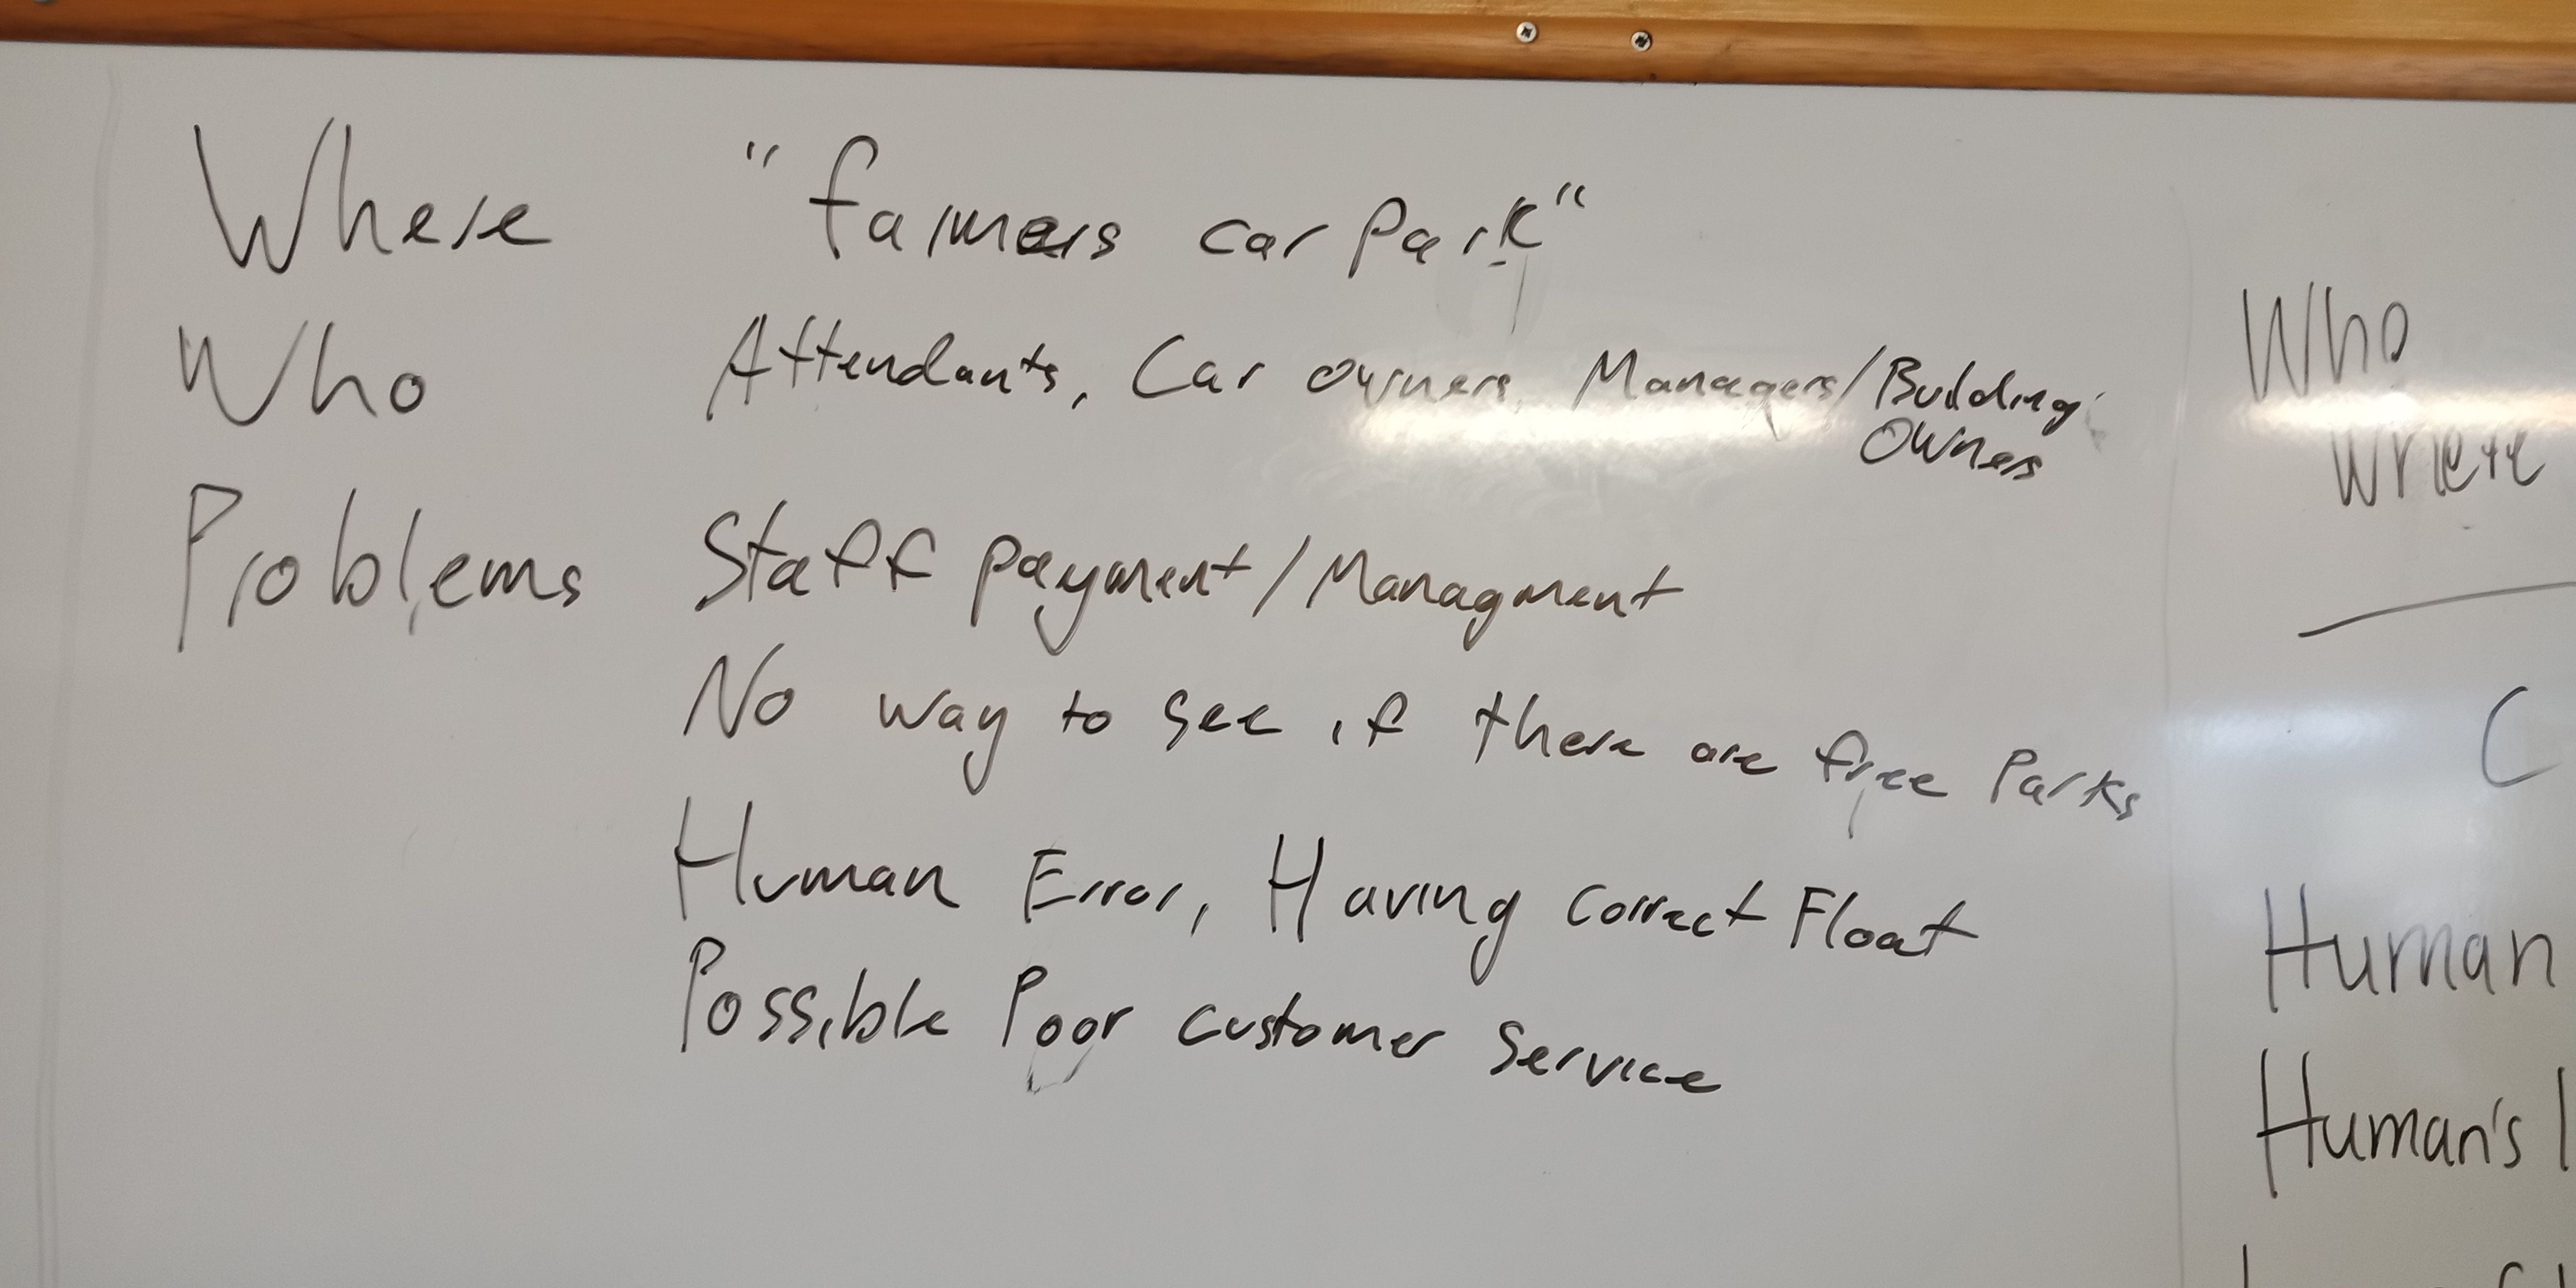 Where "farmers car Park"
Who Attendants, Car owners, Managers/Building
Owners
Problems Staff payment/Managment
No way to see if there are free Parks
Human Error, Having correct Float
Possible Poor customer service
Who
Where
C
Human
Human's